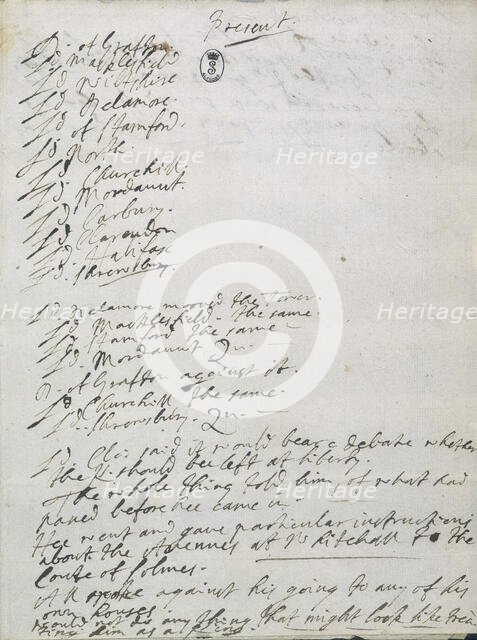 Present.
D. of Grafton.
Ld. Macklesfield
Ld. Wiltshire
Ld. Delamore.
Ld. of Stamford.
Ld. North.
Ld. Churchill.
Ld. Mordaunt.
Ld. Carbury.
Ld. Clarendon
Ld. Halifax
Ld. Shrewsbury.
Ld. Delamore mooved the Tower.
Ld. Macklesfield the same
Ld. Stamford the same
Ld. Mordaunt Qu.
D. of Grafton against it.
Ld. Churchill the same.
Ld. Shrewsbury. Qu.
Ld. Cla: said it would beare debate whether
the should bee left at liberty.
The whole thing told him of what had
passed before hee came in
Hee went and gave particular instructions
about the Avenues at Whitehall to the
Conte of Solmes.
All spoke against his going to any of his
own houses.
would not do any thing that might look like trea
ting him as a King
Heritage
Heritage
Heritage
Heritage
Heritage
Heritage
Heritage
Heritage
Heritage